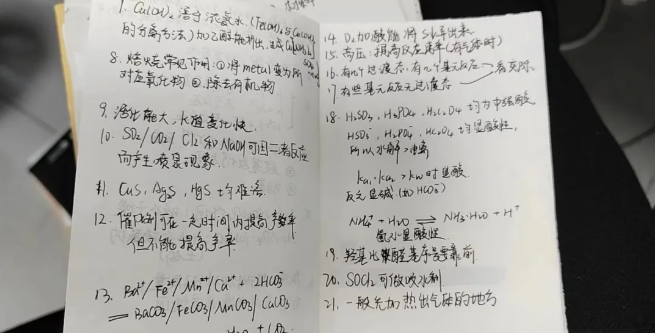 7. Cu(OH)₂ 溶于浓氨水 (Fe(OH)₃ 与 Cu(OH)₂
的分离方法) 加乙醇能析出
8. 焙烧常见作用: ① 将metal变为所
对应氧化物 ② 除去有机物
9. 活化能大, k值变化快
10. SO₂/CO₂/Cl₂ 和 NaOH 可因二者反应
而产生喷泉现象.
11. CuS, Ag₂S, HgS 均难溶
12. 催化剂可在一定时间内提高产率
但不能提高产率
13. Ba²⁺/Fe²⁺/Mn²⁺/Ca²⁺ + 2HCO₃⁻
= BaCO₃/FeCO₃/MnCO₃/CaCO₃
H₂O + CO₂
14. O₂ 加酸能将 S 弄出来.
15. 高压: 提高反应速率(有气体时)
16. 有几个过渡态, 有几个基元反应 看突跃.
17. 有些基元反应无过渡态
18. H₂SO₃, H₃PO₄, H₂C₂O₄ 均为中强酸
HSO₃⁻, H₂PO₄⁻, HC₂O₄⁻ 均显酸性,
所以水解 电离
ka₁·ka₂ > kw 时显酸.
反之显碱 (如 HCO₃⁻)
NH₄⁺ + H₂O ⇌ NH₃·H₂O + H⁺
显酸性
19. 羟基比醛基序号要靠前
20. SOCl₂ 可做吸水剂
21. 一般先加热出气体的地方